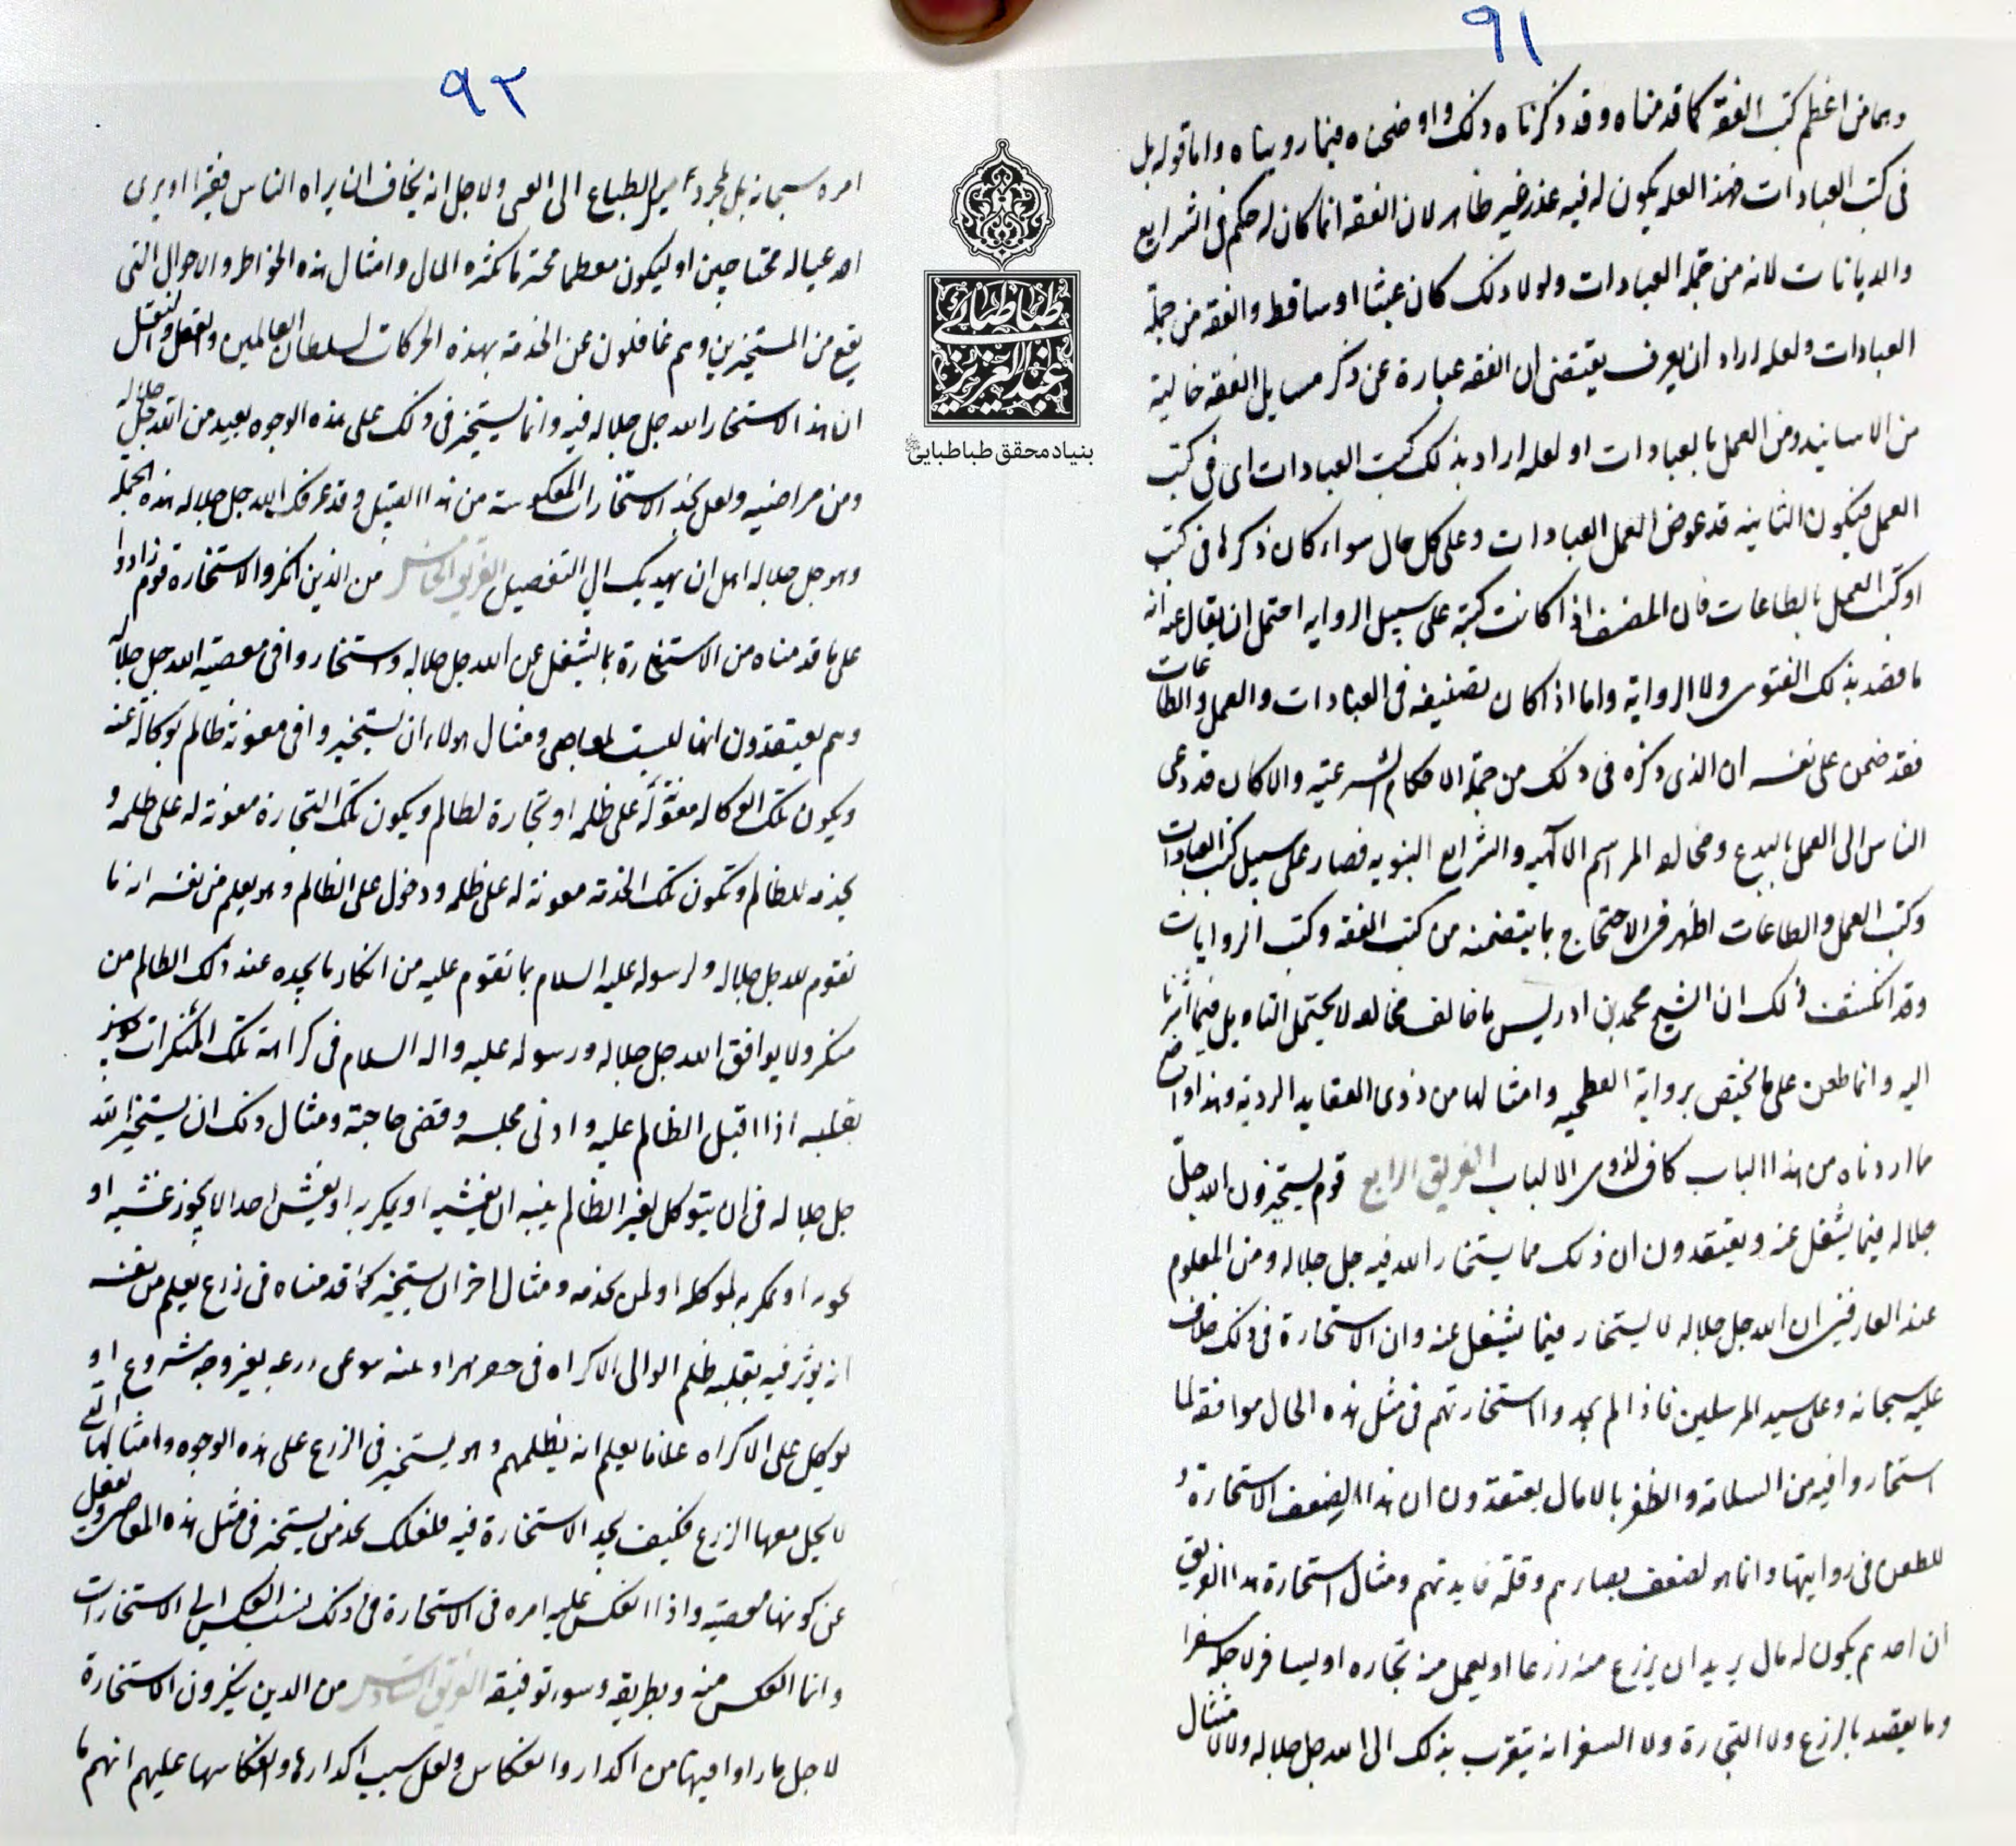 ٩١
وهما من اعظم كتب الفقه كما قدمناه وقد ذكرناه ذلك واوضحناه فيما رويناه واما قوله بل
فى كتب العبادات فهذا لعله يكون له فيه عذر غير ظاهر لان الفقه انما كان له حكم فى الشرايع
والديانات لانه من جملة العبادات ولولا ذلك كان عبثا او ساقطا والفقه من جملة
العبادات ولعله اراد ان يعرف يقتضى ان الفقه عبارة عن ذكر مسايل الفقه خالية
من الاسانيد ومن العمل بالعبادات او لعله اراد بذلك كتب العبادات اى فى كتب
العمل فيكون الثانيه قد عوض العمل العبادات وعلى كل حال سواء كان ذكرها فى كتب
او كتب العمل بالطاعات فان المصنف اذا كانت كتبه على سبيل الروايه احتمل ان يقال عنه انه
ما قصد بذلك الفتوى ولا الرواية واما اذا كان تصنيفه فى العبادات والعمل والطاعات
فقد ضمن على نفسه ان الذى ذكره فى ذلك من جملة الاحكام الشرعيه والا كان قد دعى
الناس الى العمل بالبدع ومخالفه المراسم الالهيه والشرايع النبويه فصار على سبيل كتب العبادات
وكتب العمل والطاعات اظهر فى الاحتجاج بما يتضمنه من كتب الفقه وكتب الروايات
وقد انكشف لك ان الشيخ محمد بن ادريس ما خالف مخالفه لا يحتمل التاويل فيما اشرنا
اليه وانما طعن على ما يختص برواية الفطحيه وامثالها من ذوى العقايد الرديه وهذا واضح
ما اردناه من هذا الباب كاف لذوى الالباب الفريق الرابع قوم يستخيرون الله جل
جلاله فيما يشغل عنه ويعتقدون ان ذلك مما يستخار الله فيه جل جلاله ومن المعلوم
عند العارفين ان الله جل جلاله لا يستخار فيما يشغل عنه وان الاستخارة فى ذلك خلاف
عليه سبحانه وعلى سيد المرسلين فاذا لم يجدوا استخارتهم فى مثل هذه الحال موافقه لما
استخاروا فيه من السلامة والظفر بالامال يعتقدون ان هذا لضعف الاستخارة و
للطعن فى روايتها وانما هو لضعف بصايرهم وقلة فايدتهم ومثال استخارة هذا الفريق
ان احدهم يكون له مال يريد ان يزرع منه زرعا او يعمل منه تجاره او يسافر لاجله سفرا
وما يقصد بالزرع ولا التجارة ولا السفر انه يتقرب بذلك الى الله جل جلاله ولا لامتثال
٩٢
امره سبحانه بل لمجرد ميل الطباع الى الغنى ولاجل انه يخاف ان يراه الناس فقيرا او يرى
احد عياله محتاجين او ليكون معظما محترما كثره المال وامثال هذه الخواطر والاحوال التى
يقع من المستخيرين وهم غافلون عن الخدمة بهذه الحركات لسلطان العالمين والعقل والنقل
ان هذا لا يستخار الله جل جلاله فيه وانما يستخير فى ذلك على هذه الوجوه بعيد من الله جل جلاله
ومن مراضيه ولعل تجد الاستخارات المعكوسة من هذا القبيل وقد عرفك الله جل جلاله هذه الجمله
وهو جل جلاله اهل ان يهديك الى التفصيل الفريق الخامس من الذين انكروا الاستخارة قوم زادوا
على ما قدمناه من الاستخارة بما يشغل عن الله جل جلاله واستخاروا فى معصية الله جل جلاله
وهم يعتقدون انها ليست بمعاصى ومثال هولاء ان يستخيروا فى معونة ظالم بوكالة عنه
ويكون تلك الوكاله معونة له على ظلمه او تجارة لظالم ويكون تلك التجارة معونة له على ظلمه و
بخدمه للظالم وتكون تلك الخدمة معونة له على ظلمه ودخول على الظالم وهو يعلم من نفسه انه ما
يقوم لله جل جلاله ولرسوله عليه السلام بما يقوم عليه من انكار ما يجده عند ذلك الظالم من
منكر ولا يوافق الله جل جلاله ورسوله عليه واله السلام فى كراهة تلك المنكرات
بقلبه اذا اقبل الظالم عليه وادنى مجلسه وقضى حاجته ومثال ذلك ان يستخير الله
جل جلاله فى ان يتوكل لغير الظالم بنيه ان يغشه او يمكر به او يغش احدا لا يجوز غشه او
او يمكر به لموكله او لمن يخدمه ومثال اخر ان يستخير كما قدمناه فى زرع يعلم من نفسه
انه يوثر فيه بقلبه ظلم الوالى الاكراه فى بغير وجه مشروع او
يوكل على الاكراه غلمانا يعلم انه يظلمهم وهو يستخير فى الزرع على هذه الوجوه وامثالها التى
لا يحل معها الزرع فكيف يجد الاستخارة فيه فلعلك تجد من يستخير فى مثل هذه المعاصى ويغفل
عن كونها معصية واذا انعكس عليه امره فى الاستخارة فى ذلك نسب العكس الى الاستخارات
وانما العكس منه وبطريقه وسوء توفيقه الفريق السادس من الذين ينكرون الاستخارة
لاجل ما راوا فيها من اكدار وانعكاس ولعل سبب اكدارها وانعكاسها عليهم انهم ما
طباطبائى
عبد العزيز
بنياد محقق طباطبايى